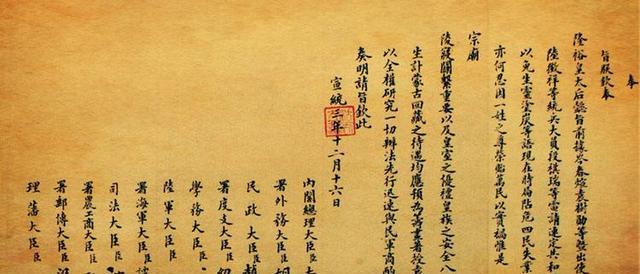 奉
旨朕欽奉
隆裕皇太后懿旨前據岑春煊袁樹勛等暨出使
陸徵祥等統兵大員段祺瑞等電請速定共和
以免生靈塗炭等語現在時局阽危四民失業
亦何忍因一姓之尊榮貽萬民以實禍惟是
宗廟
陵寢關繫重要以及皇室之優禮皇族之安全八
生計蒙古回藏之待遇均應預為籌畫著授袁
以全權研究一切辦法先行迅速與民軍商酌
奏明請旨欽此
宣統三年十二月十六日
內閣總理大臣
署外務大臣臣胡
民政大臣臣趙
署度支大臣臣紹
學務大臣臣
陸軍大臣臣
署海軍大臣臣譚
司法大臣臣
署農工商大臣臣
署郵傳大臣臣
理藩大臣臣